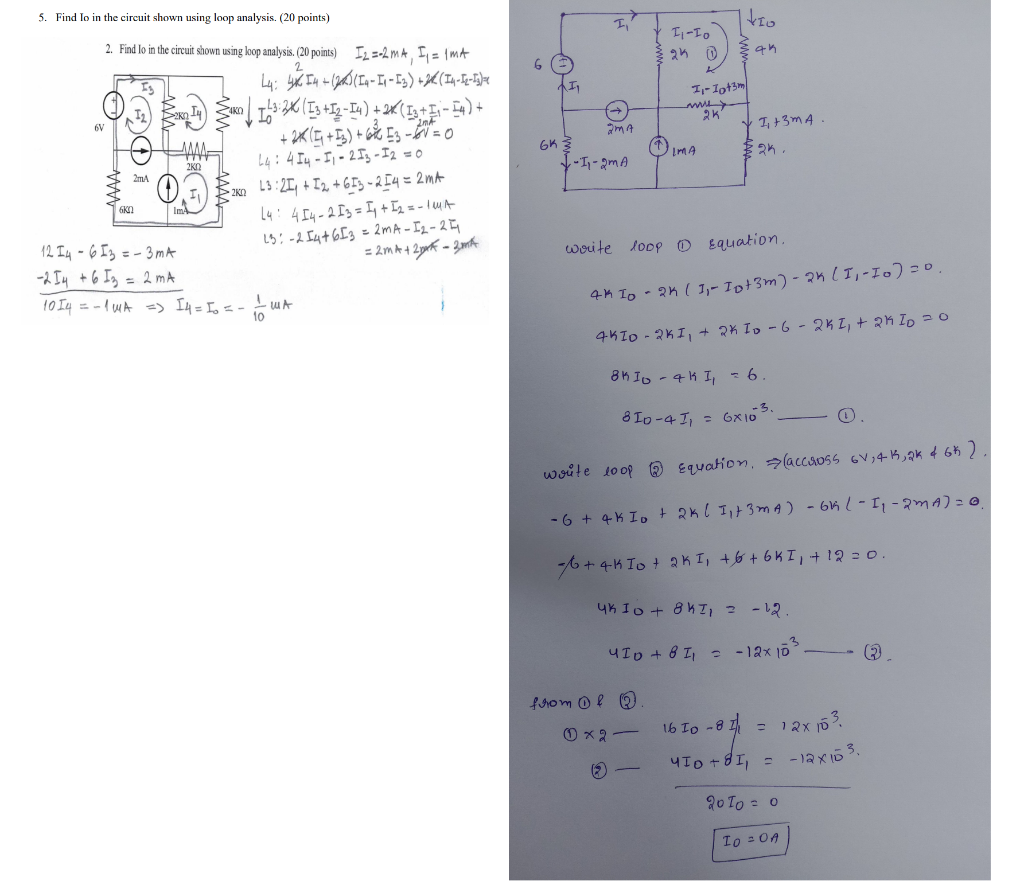 5. Find Io in the circuit shown using loop analysis. (20 points)
2. Find Io in the circuit shown using loop analysis. (20 points)
I2 = -2mA, I1 = 1mA
6V
I3
I2
2KΩ
I4
4KΩ
Io
2KΩ
2mA
6KΩ
1mA
I1
2KΩ
L4: 4I4 - I1 - 2I3 - I2 = 0
L3: 2I1 + I2 + 6I3 - 2I4 = 2mA
L4: 4I4 - 2I3 = I1 + I2 = -1mA
L3: -2I4 + 6I3 = 2mA - I2 - 2I1
= 2mA + 2mA - 2mA
12I4 - 6I3 = -3mA
-2I4 + 6I3 = 2mA
10I4 = -1mA => I4 = Io = - 1/10 mA
I1
I1-Io
2K
①
↓Io
4K
6
I1
I1-Io+3m
2K
2mA
I1+3mA.
6K
-I1-2mA
1mA
2K.
write loop ① Equation.
4K Io - 2K (I1-Io+3m) - 2K (I1-Io) = 0.
4KIo - 2KI1 + 2K Io - 6 - 2K I1 + 2K Io = 0
8K Io - 4K I1 = 6.
8Io - 4I1 = 6x10^-3. —— ①.
write loop ② Equation. ⇒(accross 6V,4K,2K & 6K).
-6 + 4K Io + 2K (I1+3mA) - 6K (-I1-2mA) = 0.
-6 + 4K Io + 2K I1 + 6 + 6K I1 + 12 = 0.
4K Io + 8K I1 = -12.
4Io + 8I1 = -12x10^-3 —— ②.
from ① & ②.
① x2 — 16Io - 8I1 = 12x10^-3.
② — 4Io + 8I1 = -12x10^-3.
20Io = 0
Io = 0A